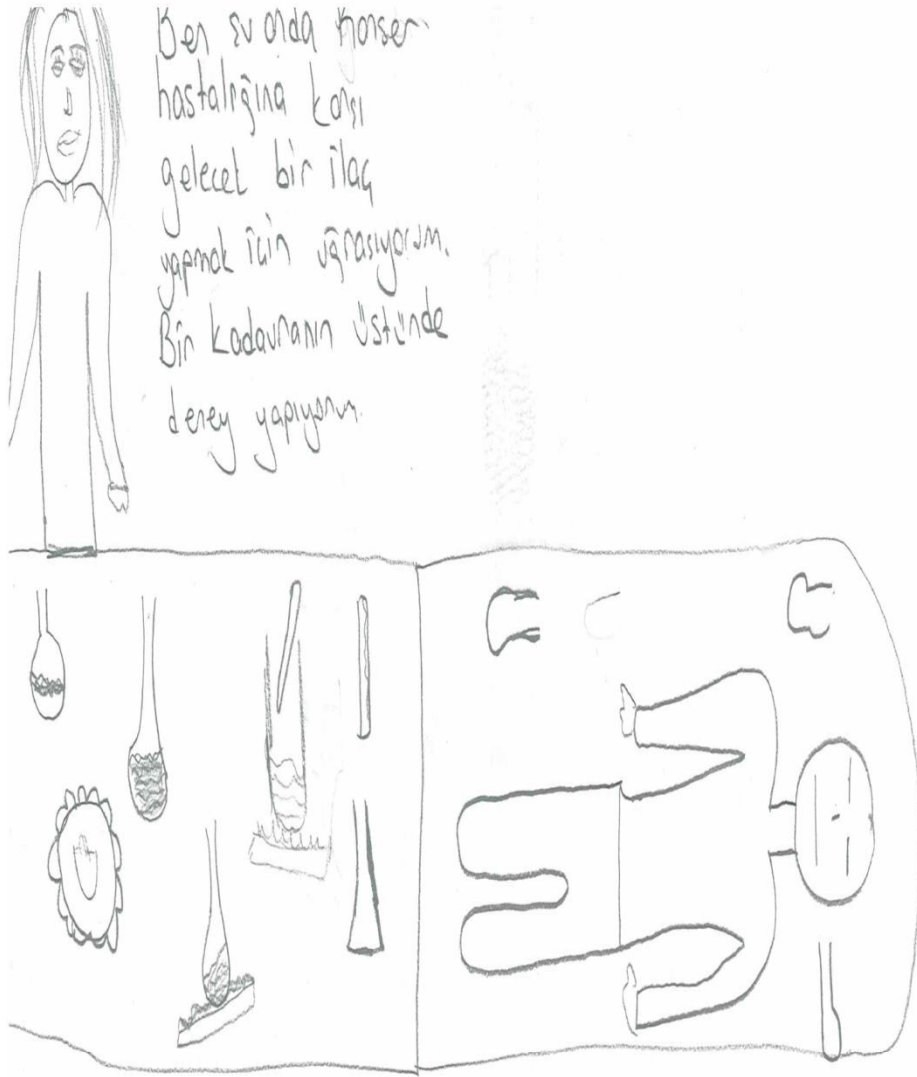 Ben şu anda kanser
hastalığına karşı
gelecek bir ilaç
yapmak için uğraşıyorum.
Bir kadavranın üstünde
deney yapıyorum.